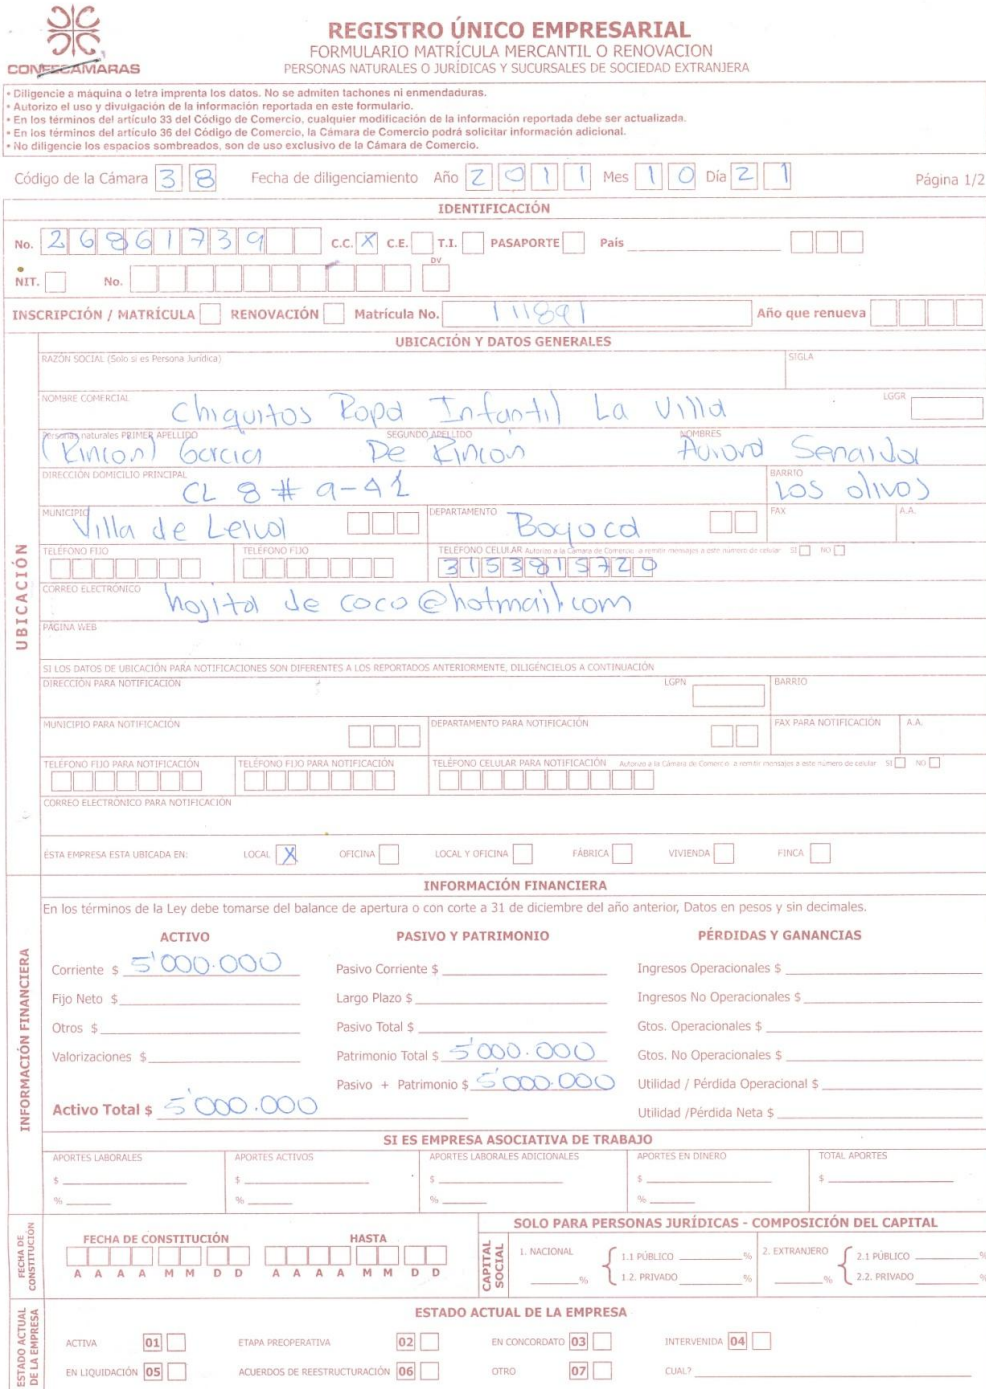 CONFECAMARAS
REGISTRO ÚNICO EMPRESARIAL
FORMULARIO MATRÍCULA MERCANTIL O RENOVACION
PERSONAS NATURALES O JURÍDICAS Y SUCURSALES DE SOCIEDAD EXTRANJERA
• Diligencie a máquina o letra imprenta los datos. No se admiten tachones ni enmendaduras.
• Autorizo el uso y divulgación de la información reportada en este formulario.
• En los términos del artículo 33 del Código de Comercio, cualquier modificación de la información reportada debe ser actualizada.
• En los términos del artículo 36 del Código de Comercio, la Cámara de Comercio podrá solicitar información adicional.
• No diligencie los espacios sombreados, son de uso exclusivo de la Cámara de Comercio.
Código de la Cámara 38 Fecha de diligenciamiento Año 2011 Mes 10 Día 21 Página 1/2
IDENTIFICACIÓN
No. 26861739 C.C. X C.E. T.I. PASAPORTE País
DV
NIT. No.
INSCRIPCIÓN / MATRÍCULA RENOVACIÓN Matrícula No. 111891 Año que renueva
UBICACIÓN
UBICACIÓN Y DATOS GENERALES
RAZÓN SOCIAL (Solo si es Persona Jurídica) SIGLA
NOMBRE COMERCIAL LGGR
Chiquitos Ropa Infantil La Villa
Personas naturales PRIMER APELLIDO SEGUNDO APELLIDO NOMBRES
(Rincon) Garcia De Rincón Aurora Senaida
DIRECCIÓN DOMICILIO PRINCIPAL BARRIO
CL 8 # 9-42 Los olivos
MUNICIPIO DEPARTAMENTO FAX A.A.
Villa de Leiva Boyoca
TELÉFONO FIJO TELÉFONO FIJO TELÉFONO CELULAR Autorizo a la Cámara de Comercio a remitir mensajes a este número de celular SI NO
3153815720
CORREO ELECTRÓNICO
hojita de coco@hotmail.com
PÁGINA WEB
SI LOS DATOS DE UBICACIÓN PARA NOTIFICACIONES SON DIFERENTES A LOS REPORTADOS ANTERIORMENTE, DILIGÉNCIELOS A CONTINUACIÓN
DIRECCIÓN PARA NOTIFICACIÓN LGPN BARRIO
MUNICIPIO PARA NOTIFICACIÓN DEPARTAMENTO PARA NOTIFICACIÓN FAX PARA NOTIFICACIÓN A.A.
TELÉFONO FIJO PARA NOTIFICACIÓN TELÉFONO FIJO PARA NOTIFICACIÓN TELÉFONO CELULAR PARA NOTIFICACIÓN Autorizo a la Cámara de Comercio a remitir mensajes a este número de celular SI NO
CORREO ELECTRÓNICO PARA NOTIFICACIÓN
ESTA EMPRESA ESTA UBICADA EN: LOCAL X OFICINA LOCAL Y OFICINA FÁBRICA VIVIENDA FINCA
INFORMACIÓN FINANCIERA
INFORMACIÓN FINANCIERA
En los términos de la Ley debe tomarse del balance de apertura o con corte a 31 de diciembre del año anterior, Datos en pesos y sin decimales.
ACTIVO PASIVO Y PATRIMONIO PÉRDIDAS Y GANANCIAS
Corriente $ 5'000.000 Pasivo Corriente $ Ingresos Operacionales $
Fijo Neto $ Largo Plazo $ Ingresos No Operacionales $
Otros $ Pasivo Total $ Gtos. Operacionales $
Valorizaciones $ Patrimonio Total $ 5'000.000 Gtos. No Operacionales $
Pasivo + Patrimonio $ 5'000.000 Utilidad / Pérdida Operacional $
Activo Total $ 5'000.000 Utilidad /Pérdida Neta $
SI ES EMPRESA ASOCIATIVA DE TRABAJO
APORTES LABORALES APORTES ACTIVOS APORTES LABORALES ADICIONALES APORTES EN DINERO TOTAL APORTES
$ $ $ $ $
% % % %
FECHA DE CONSTITUCIÓN
FECHA DE CONSTITUCIÓN HASTA
A A A A M M D D A A A A M M D D
CAPITAL SOCIAL
SOLO PARA PERSONAS JURÍDICAS - COMPOSICIÓN DEL CAPITAL
1. NACIONAL 1.1 PÚBLICO % 2. EXTRANJERO 2.1 PÚBLICO %
% 1.2. PRIVADO % % 2.2. PRIVADO %
ESTADO ACTUAL DE LA EMPRESA
ESTADO ACTUAL DE LA EMPRESA
ACTIVA 01 ETAPA PREOPERATIVA 02 EN CONCORDATO 03 INTERVENIDA 04
EN LIQUIDACIÓN 05 ACUERDOS DE REESTRUCTURACIÓN 06 OTRO 07 CUAL?